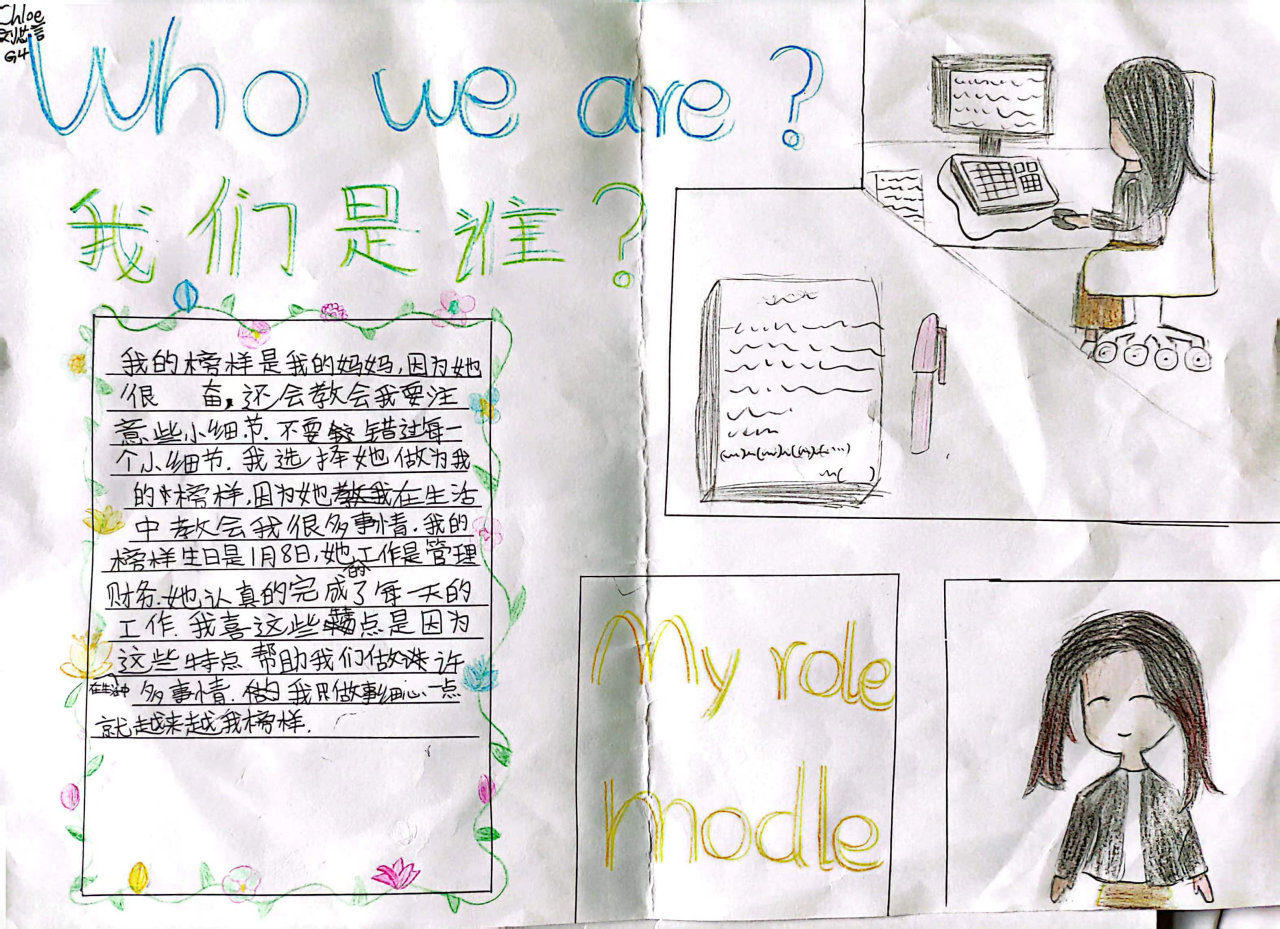 Chloe
刘芯言
G4
Who we are?
我们是谁?
我的榜样是我的妈妈,因为她
很 奋,还会教会我要注
意些小细节.不要 错过每一
个小细节.我选择她做为我
的榜样,因为她教我在生活
中教会我很多事情.我的
榜样生日是1月8日,她的工作是管理
财务.她认真的完成了每一天的
工作.我喜这些 点是因为
这些特点帮助我们做 许
在生活中 多事情. 我只做事细心一点
就越来越我榜样.
My role
modle